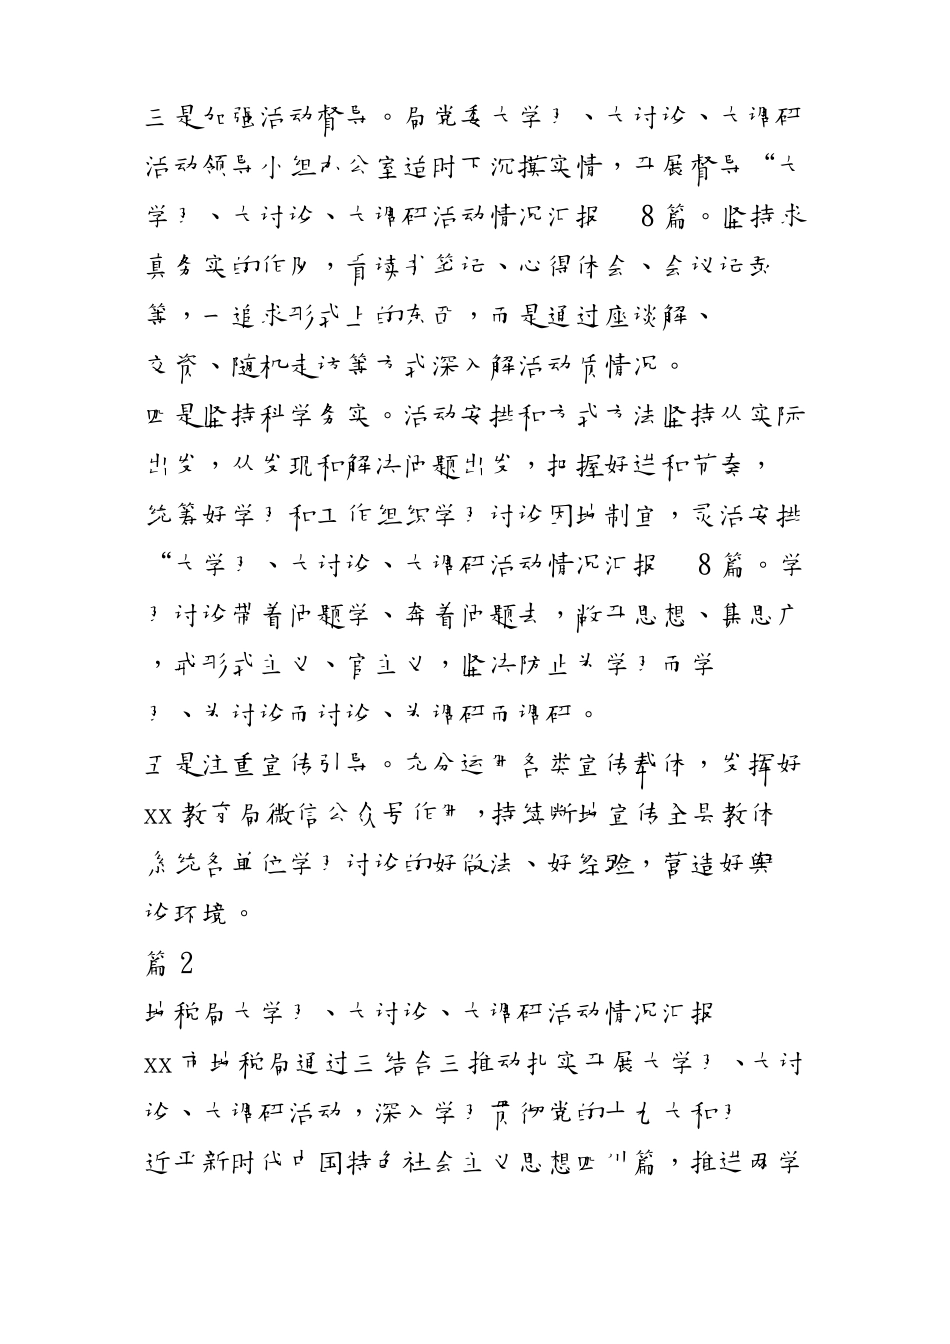 三是加强活动督导。局党委大学习、大讨论、大调研
活动领导小组办公室适时下沉摸实情，开展督导“大
学习、大讨论、大调研活动情况汇报 8篇。坚持求
真务实的作风，看读书笔记、心得体会、会议记录
等，一追求形式上的东西，而是通过座谈解、
交资、随机走访等方式深入解活动质情况。
四是坚持科学务实。活动安排和方式方法坚持从实际
出发，从发现和解决问题出发，把握好进和节奏，
统筹好学习和工作组织学习讨论因地制宜，灵活安排
“大学习、大讨论、大调研活动情况汇报 8篇。学
习讨论带着问题学、奔着问题去，敞开思想、集思广
，戒形式主义、官主义，坚决防止为学习而学
习、为讨论而讨论、为调研而调研。
五是注重宣传引导。充分运用各类宣传载体，发挥好
xx 教育局微信公众号作用，持续断地宣传全县教体
系统各单位学习讨论的好做法、好经验，营造好舆
论环境。
篇 2
地税局大学习、大讨论、大调研活动情况汇报
xx 市地税局通过三结合三推动扎实开展大学习、大讨
论、大调研活动，深入学习贯彻党的十九大和习
近平新时代中国特色社会主义思想四川篇，推进两学